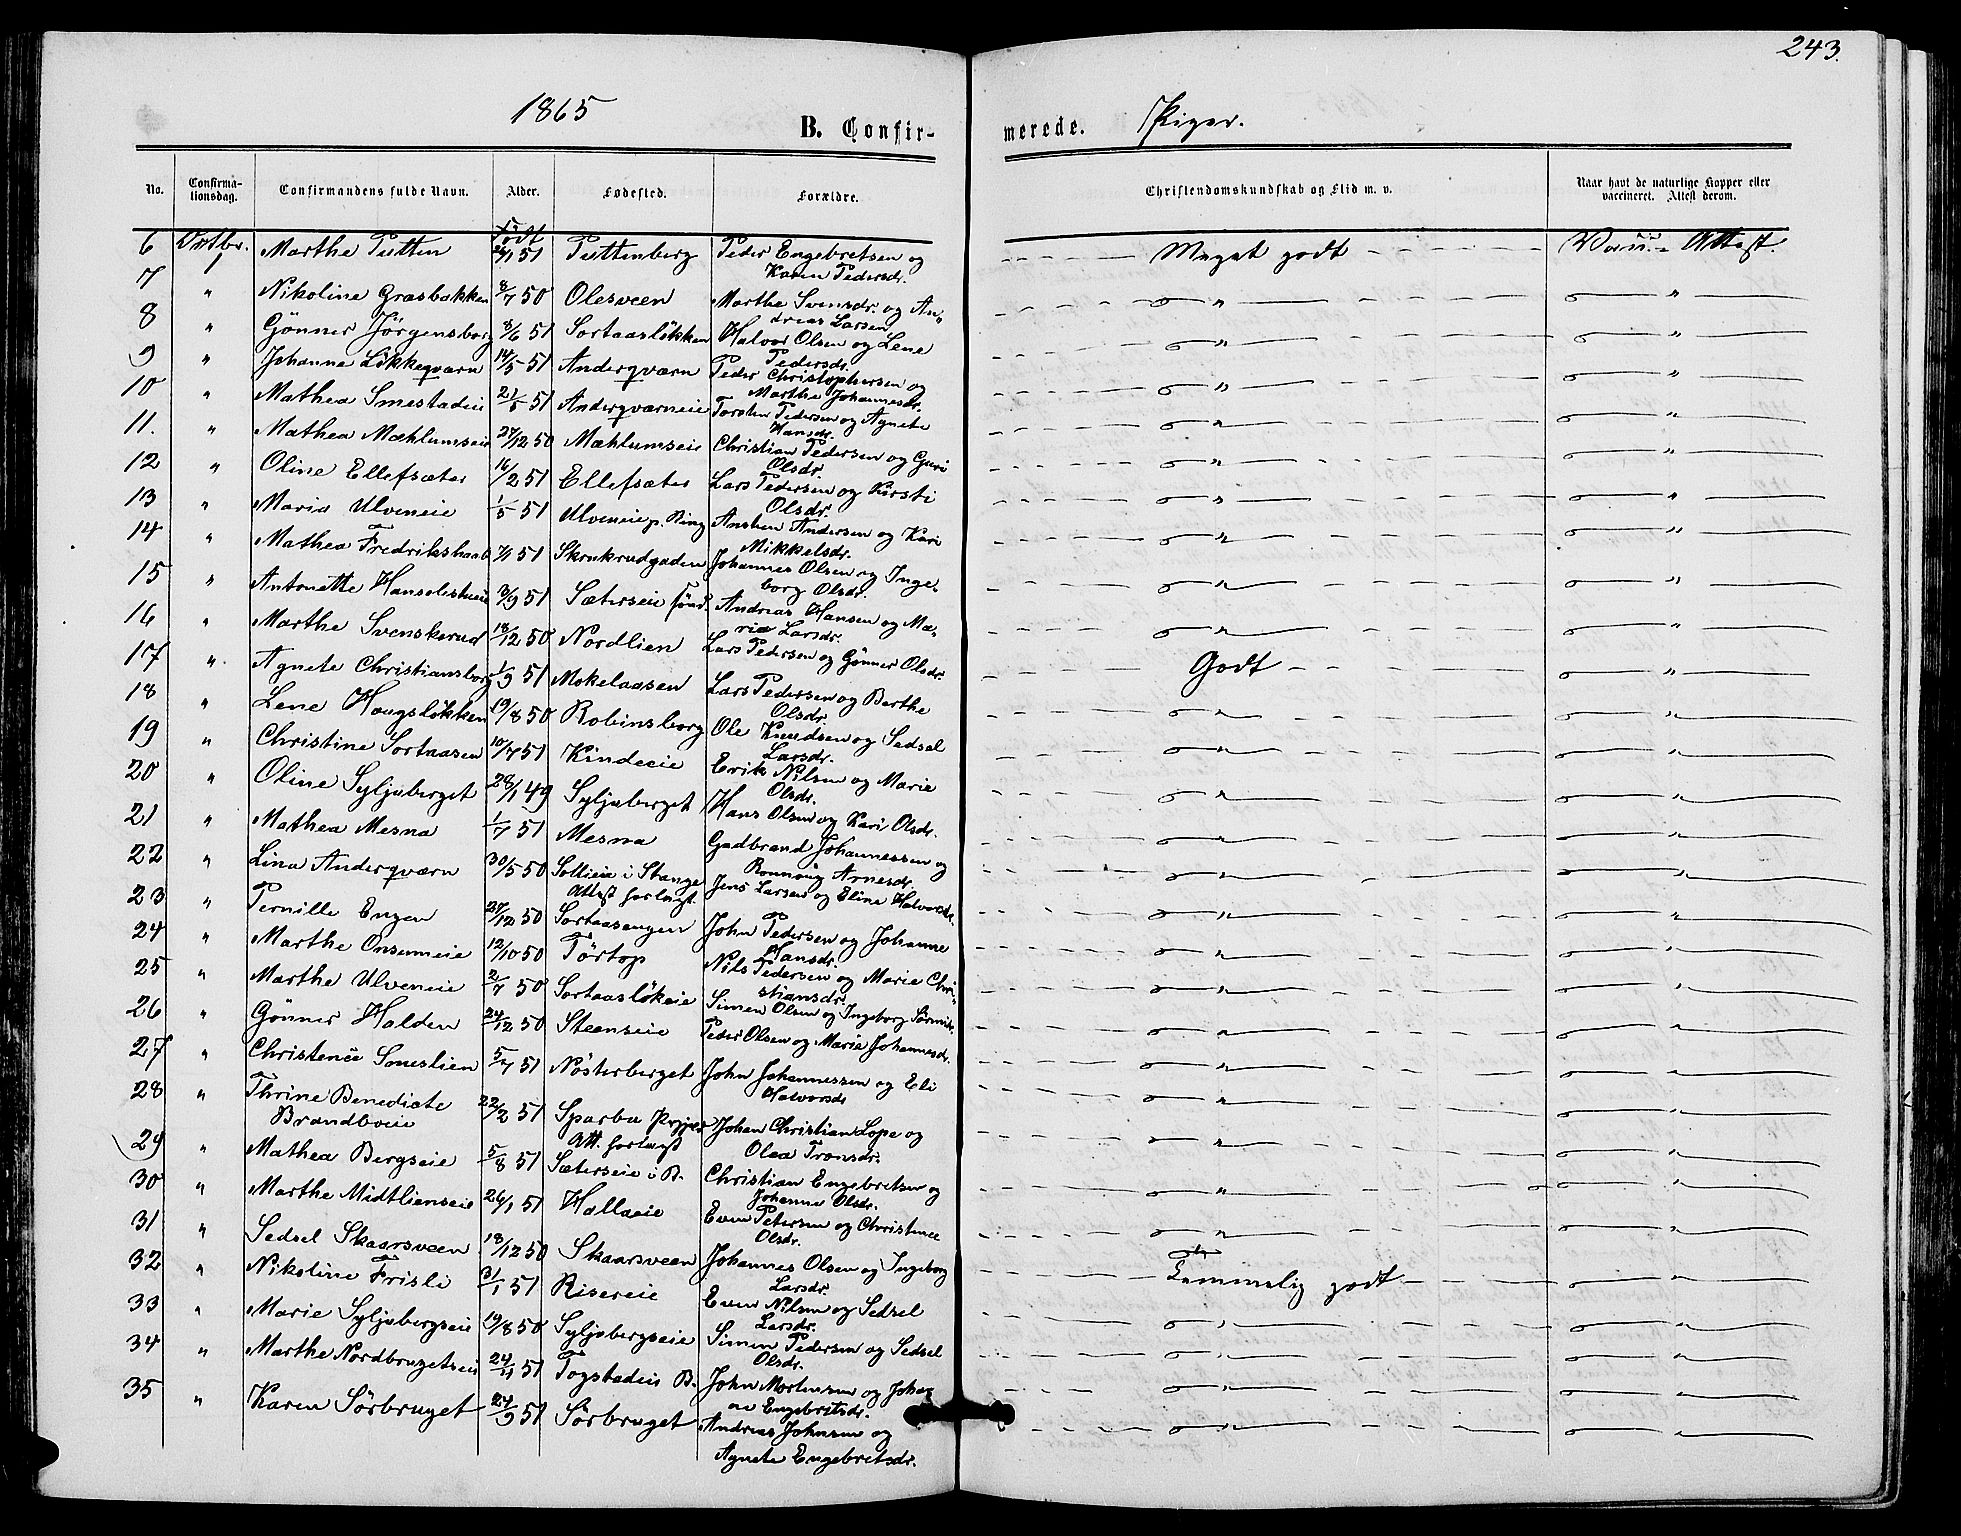 243.
1865
B. Confir-
merede. Piger.
No. Confirma-tionsdag. Confirmandens fulde Navn. Alder. Fødested. Forældre. Christendomskundskab og Flid m. v. Naar havt de naturlige Kopper eller vaccineret. Attest derom.
Født
6 Octbr. 1 Marthe Tutten 51 Tuttenberg Peder Engebretsen og Meget godt Attest.
Karen Pedersdr.
7 " Nikoline Græsbakken 8/7 50 Olesveen Marthe Svensdr. og An- " "
dreas Larsen
8 " Gönner Jörgensborg 8/6 51 Sortaaslökken Halvor Olsen og Lene " "
Pedersdr.
9 " Johanne Lökkeqværn 14/5 51 Anderqværn Peder Christophersen og " "
Marthe Johannesdr.
10 " Mathea Smestadeie 21/5 51 Anderqværneie Torsten Pedersen og Agnete " "
Hansdr.
11. " Mathea Mæhlumseie 27/12 50 Mæhlumseie Christian Pedersen og Guri " "
Olsdr.
12 " Oline Ellefsæter 16/2 51 Ellefsæter Lars Pedersen og Kirsti " "
Olsdr.
13 " Maria Ulveneie 1/5 51 Ulveneie p. Ring Ansten Andersen og Kari " "
Mikkelsdr.
14 " Mathea Fredrikshaab 51 Skrukrudgaden Johannes Olsen og Inge- " "
borg Olsdr.
15 " Antonette Hansolistueie 3/9 51 Sæterseie Andreas Hansen og Ma- " "
ria Larsdr.
16 " Marthe Svenskerud 18/12 50 Nordlien Lars Pedersen og Gönner Olsdr. " "
17 " Agnete Christiansborg 1/9 51 Mokelaasen Lars Pedersen og Berthe Godt "
Olsdr.
18 " Lene Haugslökken 19/8 50 Robinsborg Ole Knudsen og Sedsel " "
Larsdr.
19 " Christine Sortaasen 10/7 51 Kindeeie Erik Nilsen og Marie " "
Olsdr.
20 " Oline Syljuberget 28/1 49 Syljuberget Hans Olsen og Kari Olsdr. " "
21 " Mathea Mesna 1/7 51 Mesna Gudbrand Johannessen og " "
Ronnaug Arnesdr.
22 " Lina Anderqværn 30/5 50 Sollieie i Stange Jens Larsen og Eline Halvorsdr. " "
Attest forlagt
23 " Pernille Engen 27/12 50 Sortaasengen John Pedersen og Johanne " "
Hansdr.
24 " Marthe Onsumeie 12/10 50 Törtop Nils Pedersen og Marie Chri- " "
stiansdr.
25 " Marthe Ulveneie 2/7 50 Sortaaslökeie Simen Olsen og Ingeborg " "
26 " Gönner Halden 24/12 50 Steenseie Peder Olsen og Maria Johannesdr. " "
27 " Christence Smestien 5/7 51 Nösterberget John Johannessen og Eli " "
Halvorsdr
28 " Thrine Benedicte 22/2 51 Sparbu Johan Christian Lope og " "
Brandboeie Att. forlagt Olea Tronsdr.
29 " Mathea Bergseie 5/8 51 Sæterseie i B. Christian Engebretsen og " "
Johanne Olsdr.
30 " Marthe Midtlienseie 26/1 51 Hallaeie Even Petersen og Christence " "
Olsdr.
31 " Sedsel Skaarsveen 18/12 50 Skaarsveen Johannes Olsen og Ingeborg " "
Larsdr.
32 " Nikoline Frisli 31/1 51 Risereie Even Nilsen og Sedsel Temmelig godt "
Larsdr.
33 " Marie Syljubergseie 19/8 50 Syljubergseie Simen Pedersen og Sedsel " "
Olsdr.
34 " Marthe Nordbrugetseie 24/4 51 Togstadeie B. John Mortensen og Johan- " "
ne Engebretsdr.
35 " Karen Sörbruget 24/9 51 Sörbruget Andreas Johnsen og " "
Agnete Engebretsdr.